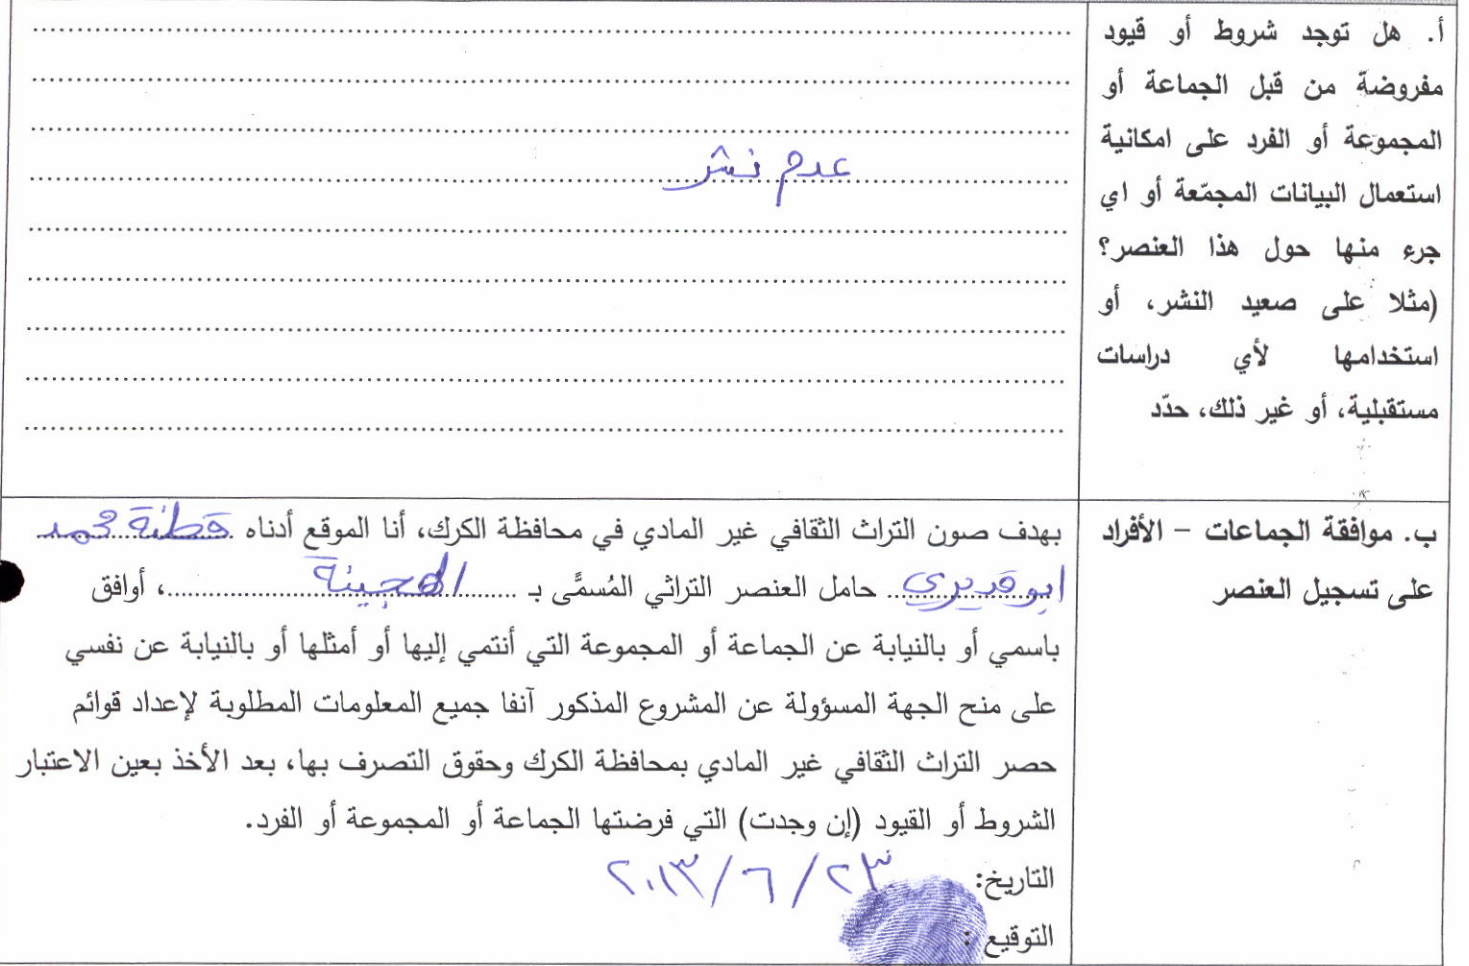 أ. هل توجد شروط أو قيود
مفروضة من قبل الجماعة أو
المجموعة أو الفرد على امكانية
استعمال البيانات المجمّعة أو اي
جرء منها حول هذا العنصر؟
(مثلا على صعيد النشر، أو
استخدامها لأي دراسات
مستقبلية، أو غير ذلك، حدّد
عدم نشر
ب. موافقة الجماعات - الأفراد
على تسجيل العنصر
بهدف صون التراث الثقافي غير المادي في محافظة الكرك، أنا الموقع أدناه قطنة محمد
ابو قديري حامل العنصر التراثي المُسمَّى بـ الهجينة، أوافق
باسمي أو بالنيابة عن الجماعة أو المجموعة التي أنتمي إليها أو أمثلها أو بالنيابة عن نفسي
على منح الجهة المسؤولة عن المشروع المذكور آنفا جميع المعلومات المطلوبة لإعداد قوائم
حصر التراث الثقافي غير المادي بمحافظة الكرك وحقوق التصرف بها، بعد الأخذ بعين الاعتبار
الشروط أو القيود (إن وجدت) التي فرضتها الجماعة أو المجموعة أو الفرد.
التاريخ: ٢٣/٦/٢٠١٣
التوقيع :